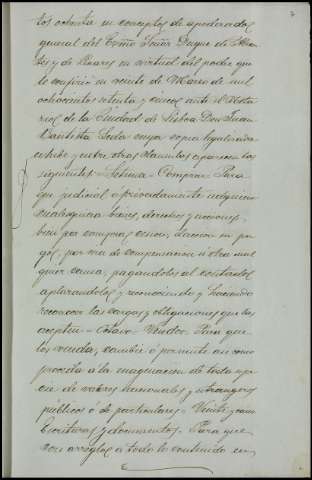 tos ochenta en concepto de apoderado
general del Exmo Señor Duque de
tes y de Linares en virtud del poder que
le confirió en veinte de Marzo de mil
ochocientos setenta y cinco ante el Nota
rio de la Ciudad de Lisboa Don Juan
Bautista cuya copia legalizada
exhibe y entre otras clausulas aparecen las
siguientes = Septima = Comprar = Para
que judicial ó privadamente adquiera
cualesquiera bienes, derechos y acciones,
bien por compra, censo, dacion en pa
go, por via de compensacion ú otra cual
quier causa, pagandolos al contado ó
aplazandolos y reconociendo y haciendo
reconocer las cargas y obligaciones que les
afecten = Octavo = Vender = Para que
los venda, cambie ó permute asi como
proceda á la enagenacion de toda espe
cie de valores nacionales y extrangeros
públicos ó de particulares = Veinte y
Escrituras y documentos = Para que
con arreglo á todo lo contenido en